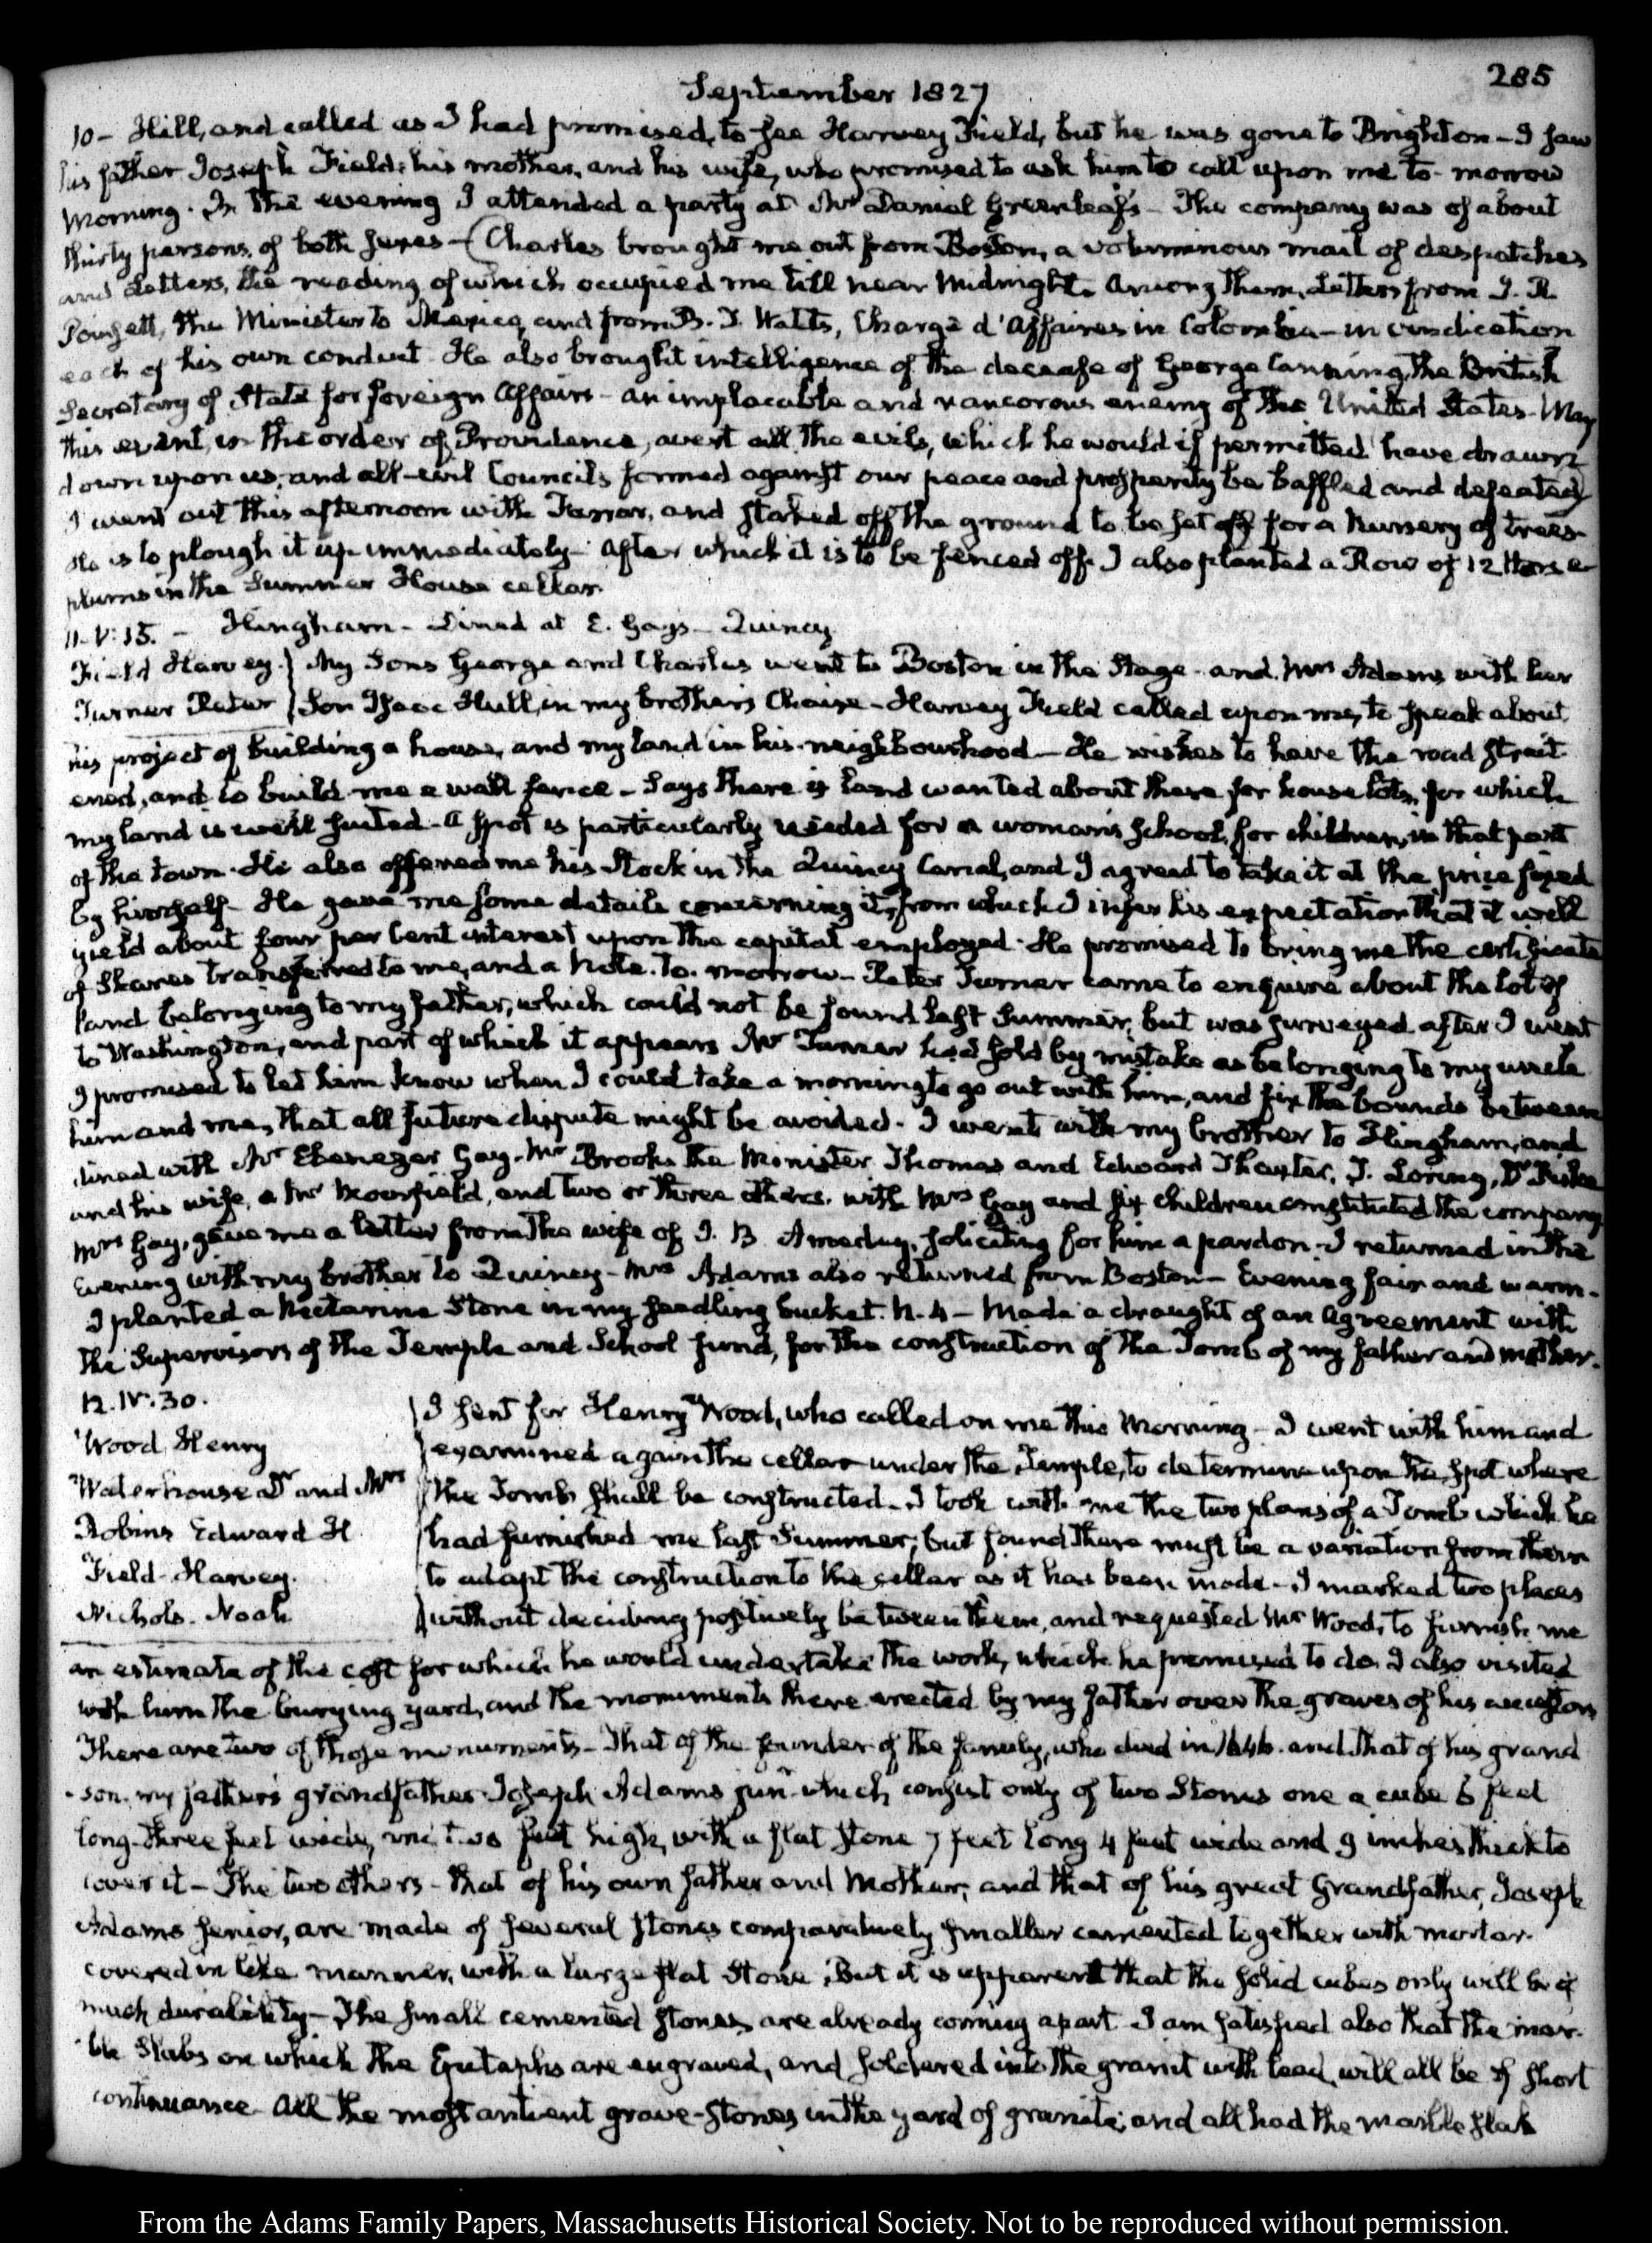 285
September 1827
10 – Hill, and called as I had promised, to see Harvey Field, but he was gone to Brighton – I saw
his father Joseph Field, his mother, and his wife, who promised to ask him to call upon me to-morrow
Morning. In the evening I attended a party at Mr Daniel Greenleaf's – The company was of about
thirty persons, of both sexes – (Charles brought me out from Boston, a voluminous mail of despatches
and Letters, the reading of which occupied me till near Midnight. Among them, Letters from J. R.
Poinsett, the Minister to Mexico, and from B. T. Watts, Chargé d'Affaires in Colombia – in vindication
each of his own conduct. He also brought intelligence of the decease of George Canning, the British
Secretary of State for foreign Affairs – an implacable and rancorous enemy of the United States. May
this event, in the order of Providence, avert all the evils, which he would if permitted have drawn
down upon us, and all evil Councils formed against our peace and prosperity be baffled and defeated)
I went out this afternoon with Farrar, and staked off the ground to be set off for a Nursery of trees.
He is to plough it up immediately – After which it is to be fenced off. I also planted a Row of 12 Horse
plums in the Summer House cellar.
11. V: 15. – Hingham – Dined at E. Gay's – Quincy
Field Harvey. } My Sons George and Charles went to Boston in the Stage – and Mrs Adams with her
Turner Peter } Son Isaac Hull, in my brother's Chaise – Harvey Field called upon me, to speak about
his project of building a house, and my land in his neighbourhood – He wishes to have the road strait
ened, and to build me a wall fence – Says there is land wanted about there for house lots, for which
my land is well suited – A spot is particularly needed for a woman's school, for children, in that part
of the town. He also offered me his Stock in the Quincy Canal, and I agreed to take it at the price fixed
by himself – He gave me some details concerning it, from which I infer his expectation that it will
yield about four per Cent interest upon the capital employed. He promised to bring me the certificate
of Shares transferred to me, and a Note. to-morrow – Peter Turner came to enquire about the lot of
land belonging to my father, which could not be found last Summer, but was surveyed after I went
to Washington, and part of which it appears Mr Turner had sold by mistake as belonging to my uncle
I promised to let him know when I could take a morning to go out with him, and fix the bounds between
him and me, that all future dispute might be avoided. I went with my brother to Hingham, and
dined with Mr Ebenezer Gay. Mr Brooks the Minister, Thomas and Edward Thaxter, J. Loring, Dr Fiske
and his wife, a Mr and two or three others, with Mrs Gay and six children constituted the company.
Mrs Gay, gave me a letter from the wife of J. B. soliciting for him a pardon – I returned in the
Evening with my brother to Quincy – Mrs Adams also returned from Boston – Evening fair and warm.
I planted a Nectarine Stone in my seedling bucket. N. 4 – Made a draught of an Agreement with
the Supervisors of the Temple and School fund, for the construction of the Tomb of my father and mother.
12. IV: 30.
Wood Henry
Waterhouse Dr and Mrs
Robins Edward H.
Field Harvey.
Nichols. Noah
I sent for Henry Wood, who called on me this Morning – I went with him and
examined again the cellar under the Temple, to determine upon the spot where
the Tomb shall be constructed. I took with me the two plans of a Tomb which he
had furnished me last Summer, but found there must be a variation from them
to adapt the construction to the cellar as it has been made – I marked two places
without deciding positively between them, and requested Mr Wood, to furnish me
an estimate of the cost for which he would undertake the work, which he promised to do. I also visited
with him the burying yard, and the monuments there erected by my father over the graves of his ancestors
There are two of those monuments – That of the founder of the family, who died in 1646. and that of his grand
son. my father's grandfather Joseph Adams junr which consist only of two Stones one a cube 6 feet
long three feet wide, and two feet high, with a flat stone 7 feet long 4 feet wide and 9 inches thick to
cover it – The two others – that of his own father and Mother; and that of his great Grandfather, Joseph
Adams Senior, are made of several stones comparatively smaller cemented together with mortar.
covered in like manner, with a large flat Stone; But it is apparent that the solid cubes only will be of
much durability – The small cemented stones are already coming apart. I am satisfied also that the mar-
ble Slabs on which the Epitaphs are engraved, and soldered into the granit with lead, will all be of short
continuance. All the most antient grave-stones in the yard of granite; and all had the marble slab
From the Adams Family Papers, Massachusetts Historical Society. Not to be reproduced without permission.